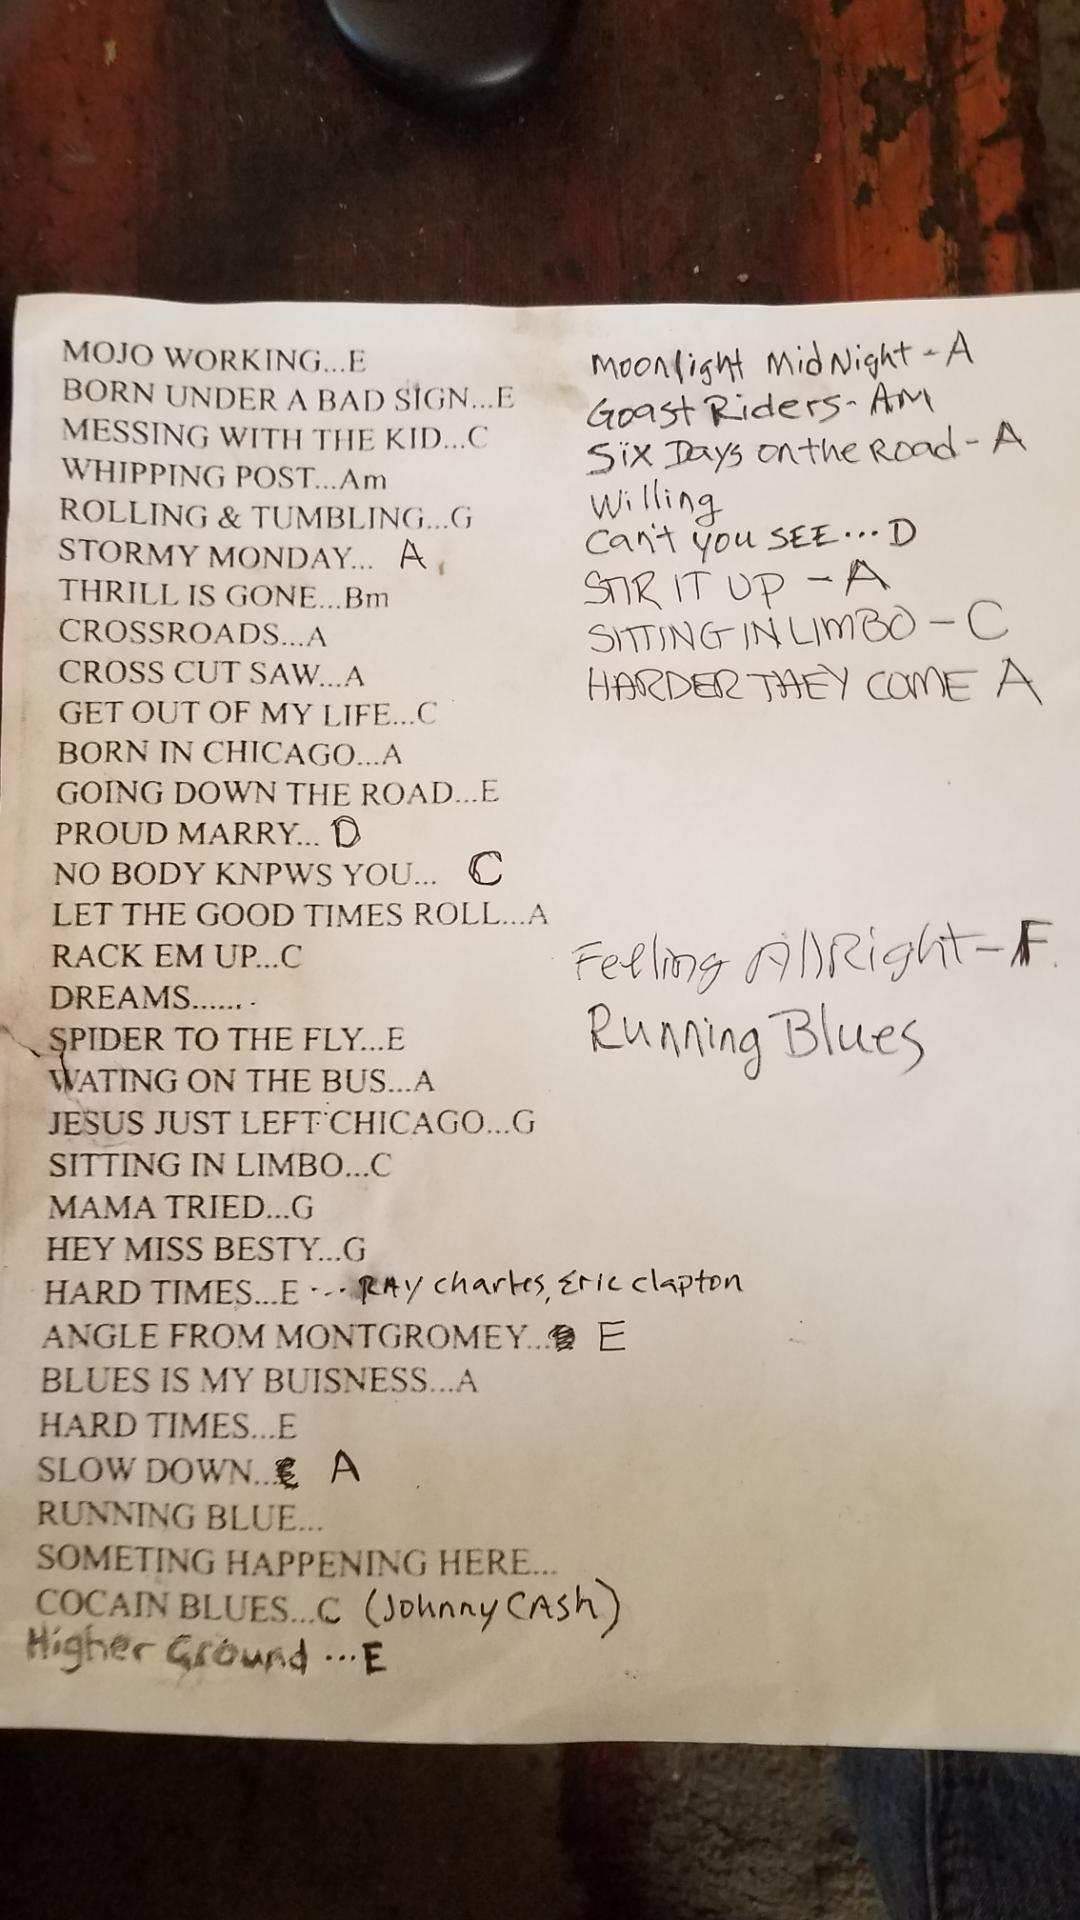 MOJO WORKING...E
BORN UNDER A BAD SIGN...E
MESSING WITH THE KID...C
WHIPPING POST...Am
ROLLING & TUMBLING...G
STORMY MONDAY... A
THRILL IS GONE...Bm
CROSSROADS...A
CROSS CUT SAW...A
GET OUT OF MY LIFE...C
BORN IN CHICAGO...A
GOING DOWN THE ROAD...E
PROUD MARRY... D
NO BODY KNPWS YOU... C
LET THE GOOD TIMES ROLL...A
RACK EM UP...C
DREAMS.......
SPIDER TO THE FLY...E
WATING ON THE BUS...A
JESUS JUST LEFT CHICAGO...G
SITTING IN LIMBO...C
MAMA TRIED...G
HEY MISS BESTY...G
HARD TIMES...E ... RAY Charles, Eric Clapton
ANGLE FROM MONTGROMEY... E
BLUES IS MY BUISNESS...A
HARD TIMES...E
SLOW DOWN... A
RUNNING BLUE...
SOMETING HAPPENING HERE...
COCAIN BLUES...C (Johnny CASh)
Higher Ground ...E
Moonlight MidNight - A
Goast Riders - AM
Six Days on the Road - A
Willing
Can't you SEE...D
STIR IT UP - A
SITTING IN LIMBO - C
HARDER THEY COME A
Feeling AllRight - F.
Running Blues